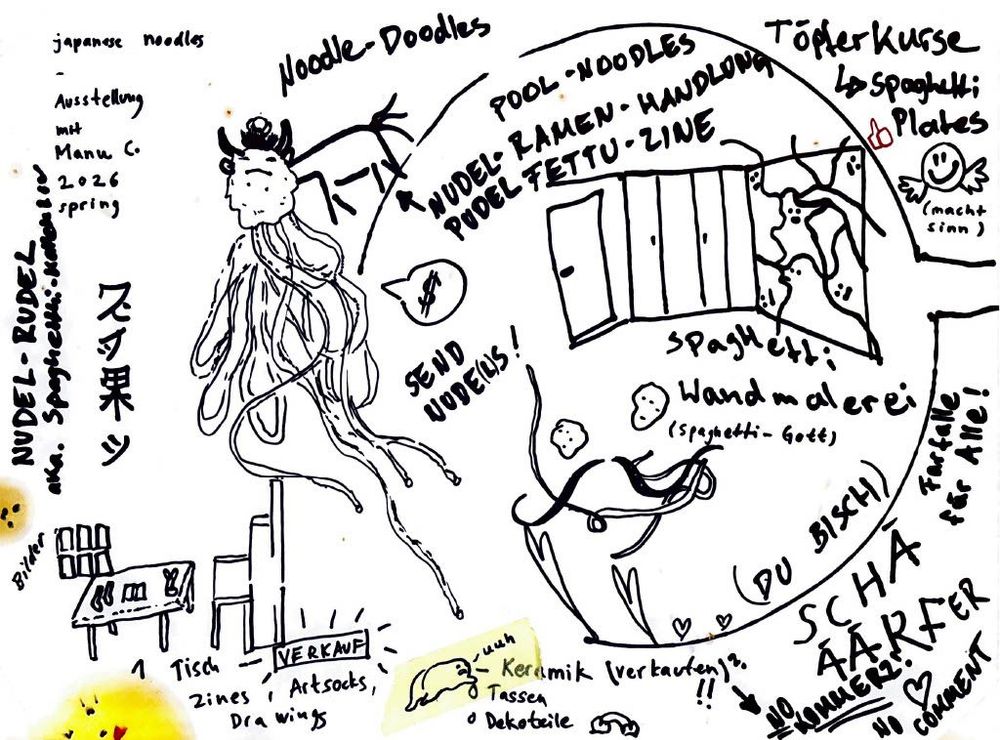 japanese noodles
-
Ausstellung
mit
Manu C.
2026
spring
Noodle-Doodles
POOL-NOODLES
NUDEL-RAMEN-HANDLUNG
PUDEL FETTU-ZINE
Töpferkurse
↳ Spaghetti
Plates
(macht
sinn)
NUDEL-RUDEL
aka. Spaghetti-
$
SEND
NUDE(L)S!
Spaghetti
Wandmalerei
(Spaghetti-Gott)
Farfalle
für Alle!
(DU BISCH)
SCHÄ
ÄÄRFER
Bilder
1 Tisch
VERKAUF
zines, Artsocks,
Drawings
uuh
Keramik (verkaufen)?
!!
Tassen
Dekoteile
NO
KOMMERZ!
NO COMMENT